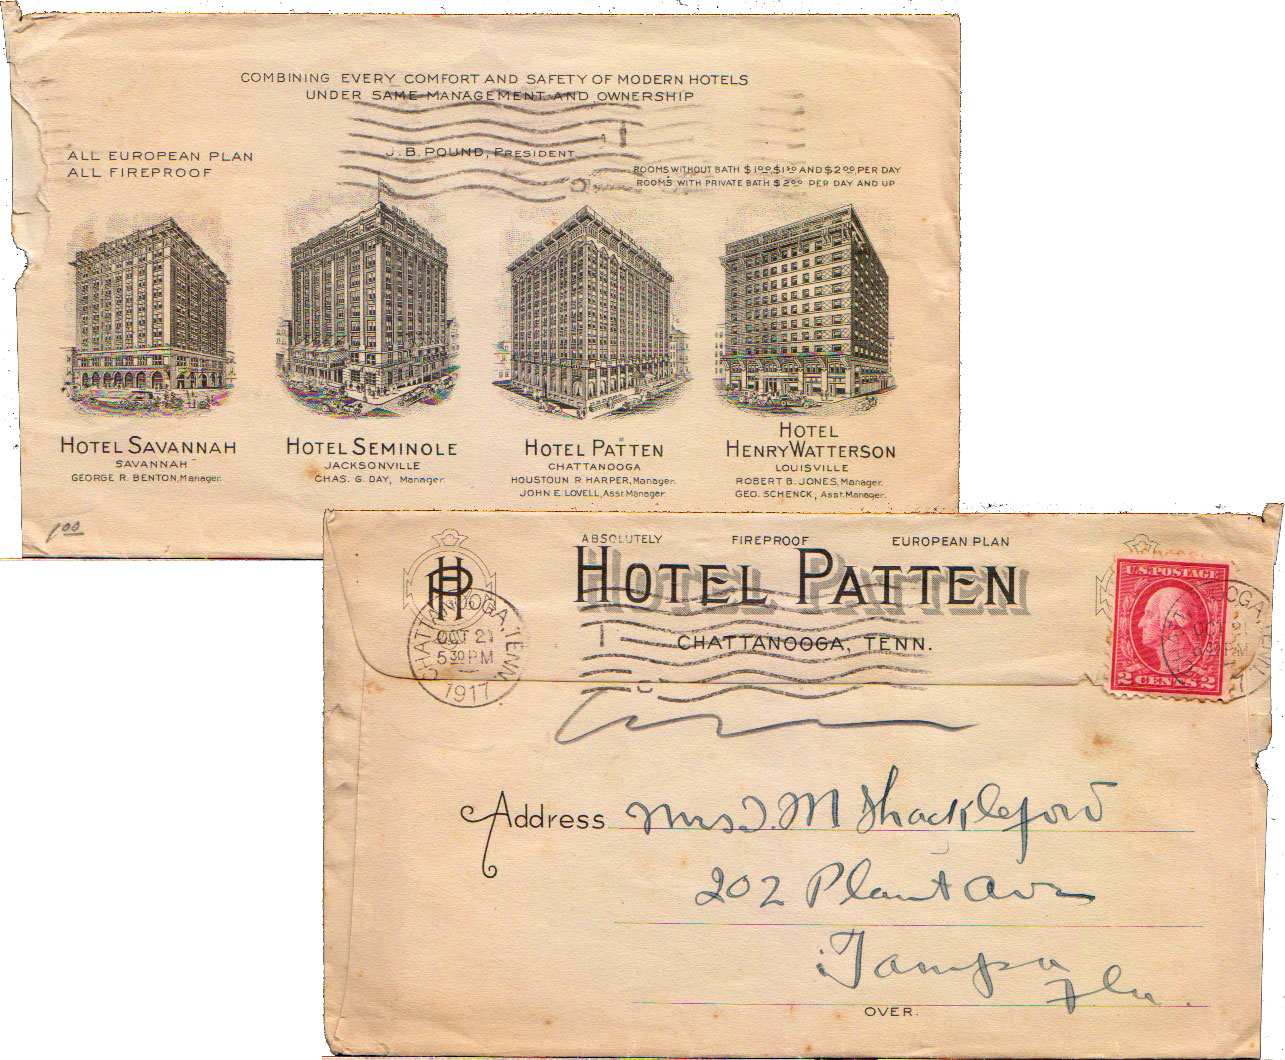 COMBINING EVERY COMFORT AND SAFETY OF MODERN HOTELS
UNDER SAME MANAGEMENT AND OWNERSHIP
ALL EUROPEAN PLAN
ALL FIREPROOF
J. B. POUND, PRESIDENT
ROOMS WITHOUT BATH $1.00, $1.50 AND $2.00 PER DAY
ROOMS WITH PRIVATE BATH $2.00 PER DAY AND UP
HOTEL SAVANNAH
SAVANNAH
GEORGE R. BENTON, Manager.
HOTEL SEMINOLE
JACKSONVILLE
CHAS. G. DAY, Manager.
HOTEL PATTEN
CHATTANOOGA
HOUSTOUN R. HARPER, Manager.
JOHN E. LOVELL, Asst. Manager.
HOTEL
HENRY WATTERSON
LOUISVILLE
ROBERT B. JONES, Manager.
GEO. SCHENCK, Asst. Manager.
1.00
ABSOLUTELY FIREPROOF EUROPEAN PLAN
HP
HOTEL PATTEN
CHATTANOOGA, TENN.
CHATTANOOGA, TENN.
OCT 21
5 30 PM
1917
U.S. POSTAGE
2 CENTS 2
Address Mrs J. M Shackleford
202 Plant Ave
Tampa
Fla.
OVER.